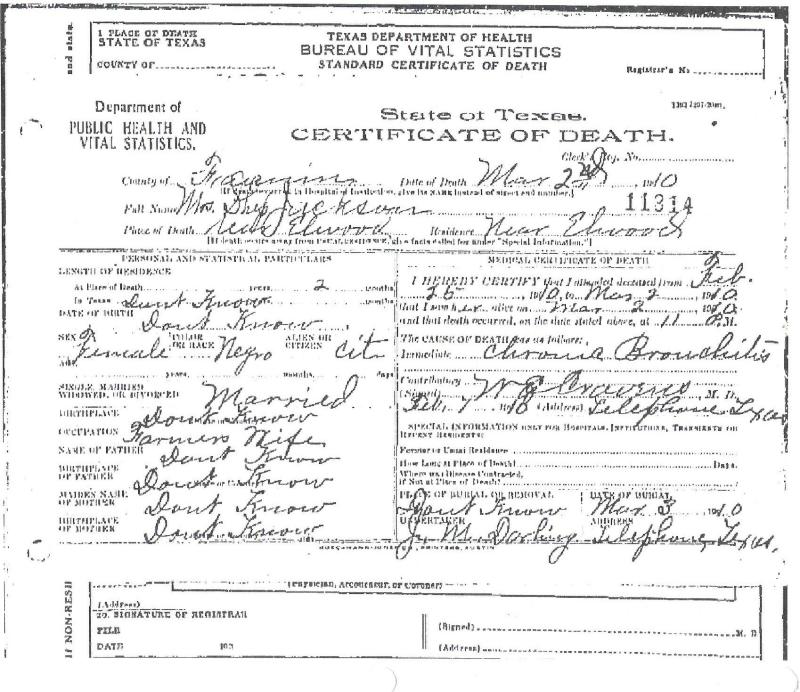 and state.
1 PLACE OF DEATH
STATE OF TEXAS
COUNTY OF
TEXAS DEPARTMENT OF HEALTH
BUREAU OF VITAL STATISTICS
STANDARD CERTIFICATE OF DEATH
Registrar's No
Department of
PUBLIC HEALTH AND
VITAL STATISTICS.
State of Texas.
CERTIFICATE OF DEATH.
Clerk's Reg. No.
County of Fannin Date of Death Mar 2nd, 1910
[If death occurred in Hospital or Institution, give its NAME instead of street and number.]
11314
Full Name Mrs. Jackson
Place of Death Near Elwood Residence Near Elwood
[If death occurs away from USUAL RESIDENCE, give facts called for under "Special Information."]
PERSONAL AND STATISTICAL PARTICULARS
LENGTH OF RESIDENCE
At Place of Death years 2 months
In Texas Dont Know months
DATE OF BIRTH
Dont Know
SEX Female COLOR OR RACE Negro ALIEN OR CITIZEN Cit
AGE years, months, days
SINGLE, MARRIED
WIDOWED, OR DIVORCED Married
BIRTHPLACE Dont Know
OCCUPATION Farmers Wife
NAME OF FATHER Dont Know
BIRTHPLACE
OF FATHER Dont Know
MAIDEN NAME
OF MOTHER Dont Know
BIRTHPLACE
OF MOTHER Dont Know
MEDICAL CERTIFICATE OF DEATH
I HEREBY CERTIFY that I attended deceased from Feb.
25 1910, to Mar 2 1910
that I saw her alive on Mar 2 1910
and that death occurred, on the date stated above, at 11 P.M.
The CAUSE OF DEATH was as follows:
Immediate Chronic Bronchitis
Contributory
(Signed) W E Cravens M. D.
Feb, 7 1910 (Address) Telephone Texas
SPECIAL INFORMATION ONLY FOR HOSPITALS, INSTITUTIONS, TRANSIENTS OR
RECENT RESIDENTS:
Former or Usual Residence
How Long at Place of Death? Days.
Where was Disease Contracted,
if Not at Place of Death?
PLACE OF BURIAL OR REMOVAL DATE OF BURIAL
Dont Know Mar 3 1910
UNDERTAKER ADDRESS
J. M. Darling Telephone, Texas.
PRINTERS, AUSTIN
(Physician, Accoucheur, or Coroner)
If NON-RESI
(Address)
20. SIGNATURE OF REGISTRAR
FILE
DATE 193
(Signed) M. D
(Address)